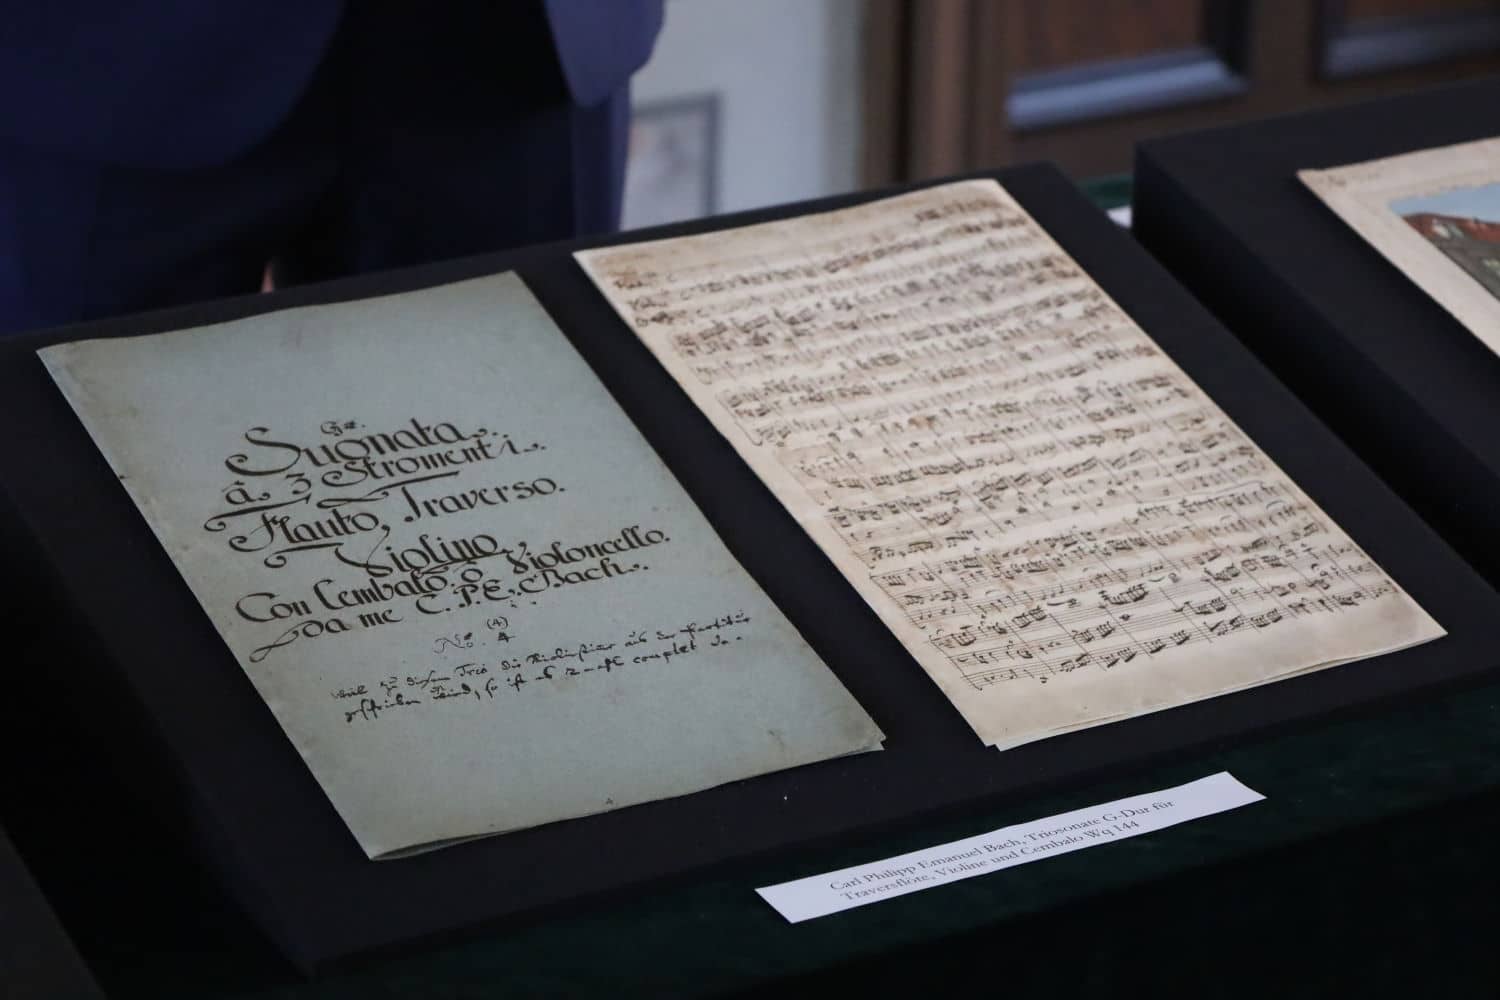 G♮.
Suonata
à. 3 Stromenti.
Flauto, Traverso.
Violino,
Con Cembalo, o Violoncello.
Da me C. P. E. Bach.
(4)
No. 4
weil zu diesem Trio die Violinstimme aus der Partitur
geschrieben wird, so ist es 2 mahl complet da.
Carl Philipp Emanuel Bach, Triosonate G-Dur für
Traversflöte, Violine und Cembalo Wq 144